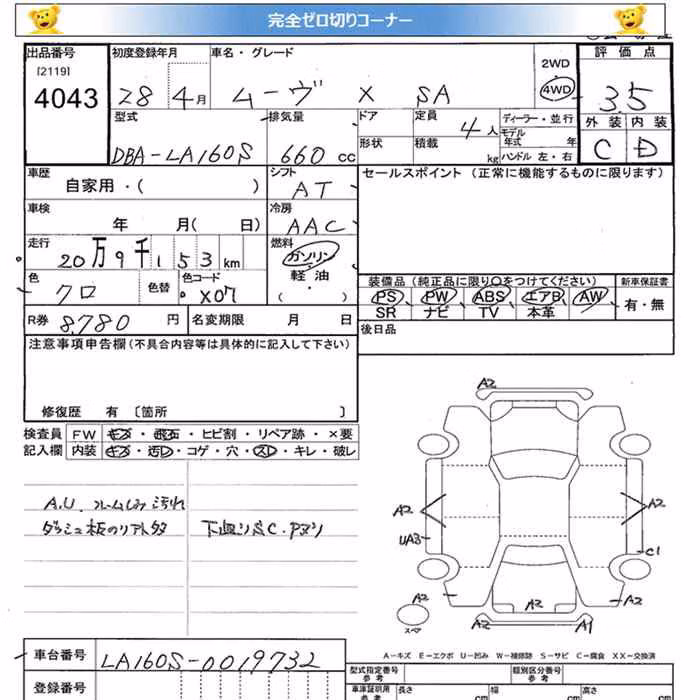 完全ゼロ切りコーナー
出品番号 初度登録年月 車名・グレード 2WD 4WD 評価点
[2119]
4043 28 4月 ムーヴ X SA 3.5
型式 排気量 ドア 定員 4人 ディーラー・並行 外装 内装
モデル年式 年
DBA-LA160S 660cc 形状 積載 kg ハンドル 左・右 C D
車歴 シフト セールスポイント (正常に機能するものに限ります)
自家用・( ) AT
車検 冷房
年 月( 日) AAC
走行 燃料
20万9千153km ガソリン
軽・油
( ・ )
色 色替 色コード 装備品 (純正品に限り〇をつけてください) 新車保証書
クロ X07 PS PW ABS エアB AW 有・無
SR ナビ TV 本革
R券 8,780円 名変期限 月 日 後日品
注意事項申告欄(不具合内容等は具体的に記入して下さい)
修復歴 有 〔箇所 〕
検査員 FW キズ・飛石・ヒビ割・リペア跡・×要
記入欄 内装 キズ・汚レ・コゲ・穴・スレ・キレ・破レ
A.U.
下廻りS C.
A2
A2 A2
UA3 C1
A2 A2 A2
スペア A2 A1
A-キズ E-エクボ U-凹み W-補修跡 S-サビ C-腐食 XX-交換済
車台番号 LA160S-0019732
登録番号
型式指定番号 参考 類別区分番号 参考
車庫証明用 参考 長さ cm 幅 cm 高さ cm